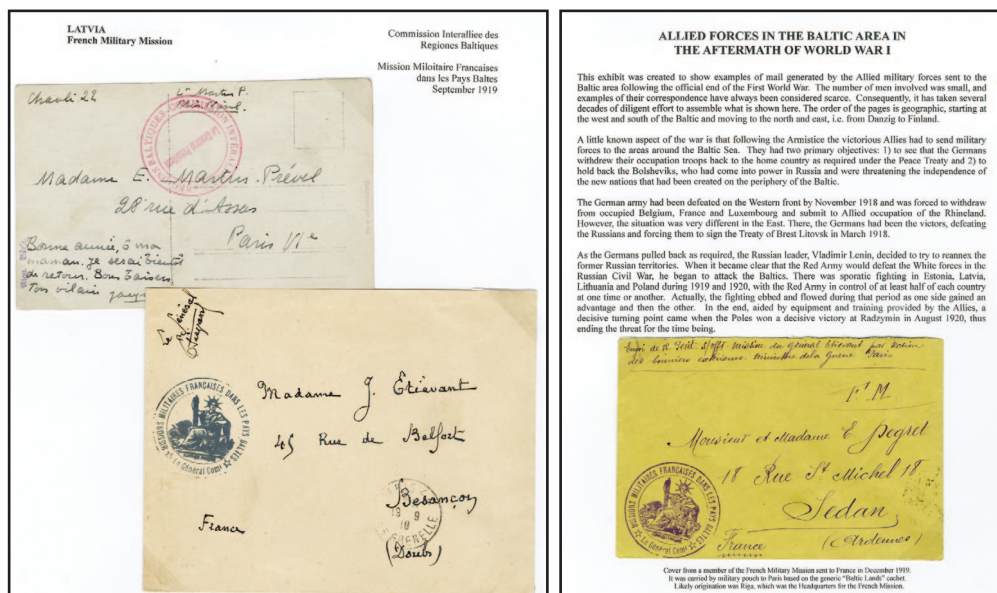 LATVIA
French Military Mission
Commission Interalliee des
Regiones Baltiques
Mission Miloitaire Francaises
dans les Pays Baltes
September 1919
Madame E. Martus-Prével
28 rue d'Assas
Paris VIe
Bonne année, ô ma
maman. Je serai bientôt
de retour. Bons baisers
Ton vilain
Le Général
Etievant
MISSIONS MILITAIRES FRANÇAISES DANS LES PAYS BALTES
Le Général Comt
Madame J. Etiévant
45 Rue de Belfort
Besançon
(Doubs)
France
ALLIED FORCES IN THE BALTIC AREA IN
THE AFTERMATH OF WORLD WAR I
This exhibit was created to show examples of mail generated by the Allied military forces sent to the
Baltic area following the official end of the First World War. The number of men involved was small, and
examples of their correspondence have always been considered scarce. Consequently, it has taken several
decades of diligent effort to assemble what is shown here. The order of the pages is geographic, starting at
the west and south of the Baltic and moving to the north and east, i.e. from Danzig to Finland.
A little known aspect of the war is that following the Armistice the victorious Allies had to send military
forces to the areas around the Baltic Sea. They had two primary objectives: 1) to see that the Germans
withdrew their occupation troops back to the home country as required under the Peace Treaty and 2) to
hold back the Bolsheviks, who had come into power in Russia and were threatening the independence of
the new nations that had been created on the periphory of the Baltic.
The German army had been defeated on the Western front by November 1918 and was forced to withdraw
from occupied Belgium, France and Luxembourg and submit to Allied occupation of the Rhineland.
However, the situation was very different in the East. There, the Germans had been the victors, defeating
the Russians and forcing them to sign the Treaty of Brest Litovsk in March 1918.
As the Germans pulled back as required, the Russian leader, Vladimir Lenin, decided to try to reannex the
former Russian territories. When it became clear that the Red Army would defeat the White forces in the
Russian Civil War, he began to attack the Baltics. There was sporatic fighting in Estonia, Latvia,
Lithuania and Poland during 1919 and 1920, with the Red Army in control of at least half of each country
at one time or another. Actually, the fighting ebbed and flowed during that period as one side gained an
advantage and then the other. In the end, aided by equipment and training provided by the Allies, a
decisive turning point came when the Poles won a decisive victory at Radzymin in August 1920, thus
ending the threat for the time being.
F. M.
Monsieur et Madame E Pegret
18 Rue St Michel 18
Sedan
(Ardennes)
France
MISSIONS MILITAIRES FRANÇAISES DANS LES PAYS BALTES
Le Général Comt
Cover from a member of the French Military Mission sent to France in December 1919.
It was carried by military pouch to Paris based on the generic "Baltic Lands" cachet.
Likely origination was Riga, which was the Headquarters for the French Mission.